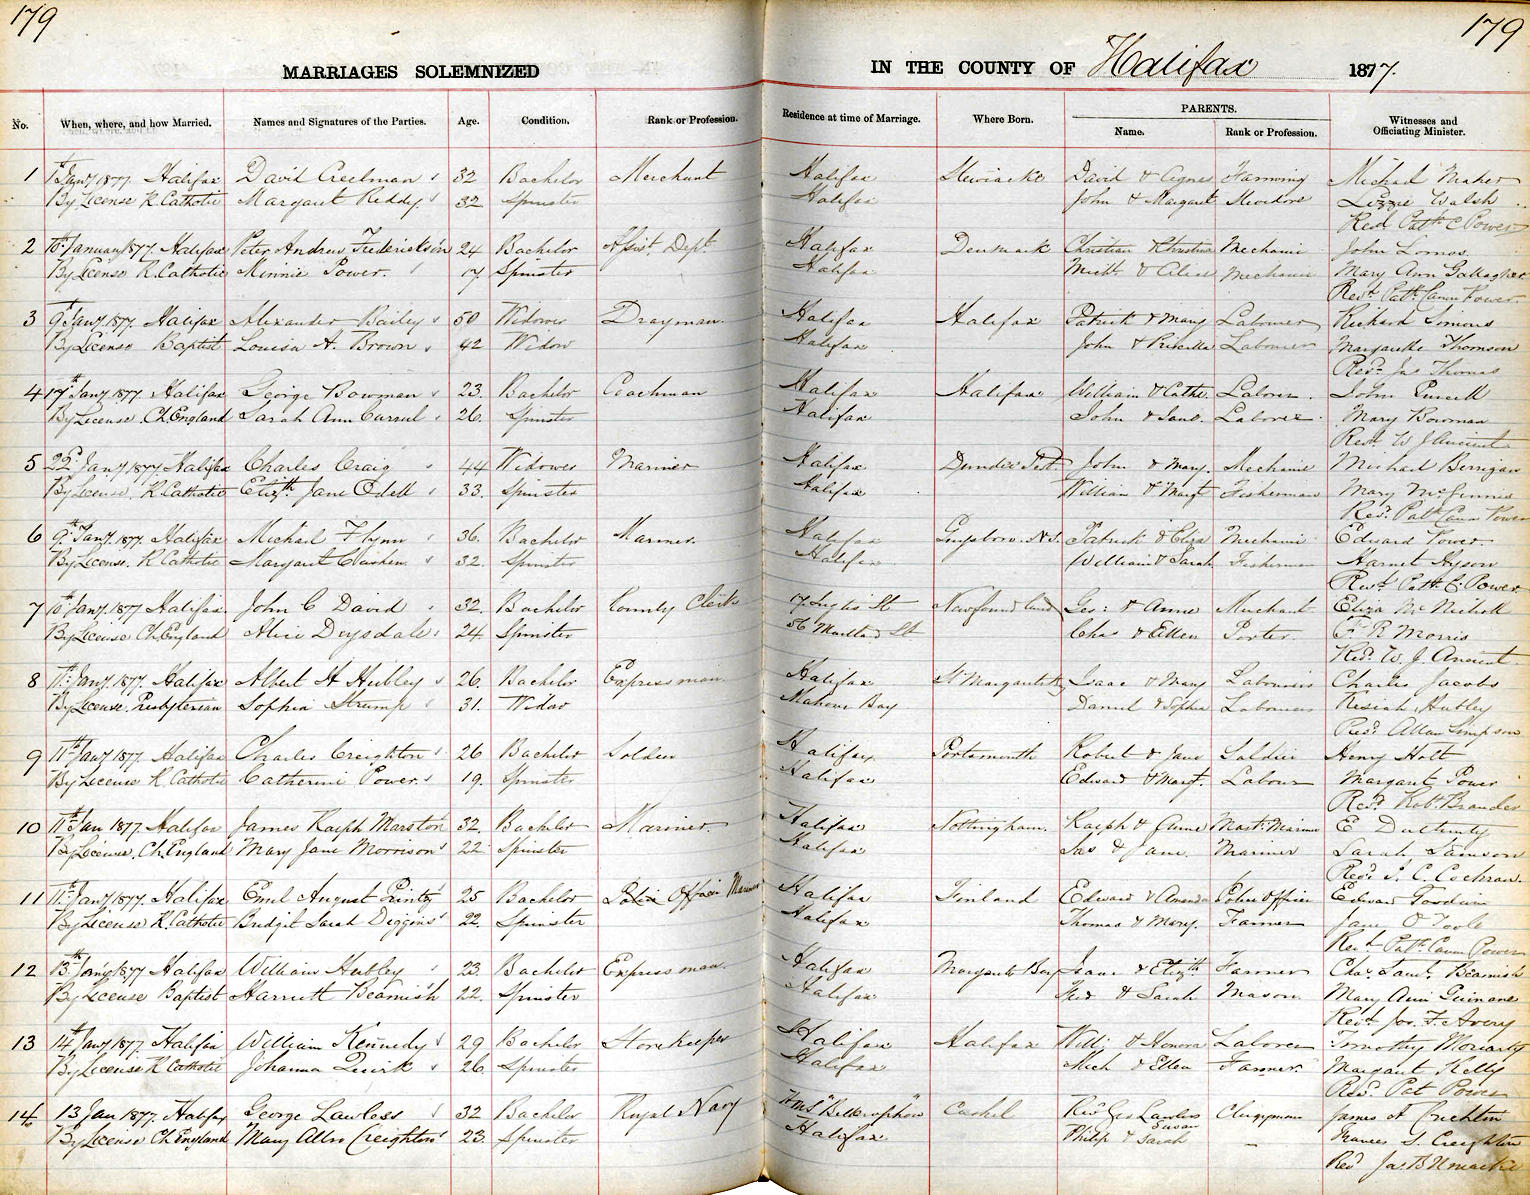 179
179
MARRIAGES SOLEMNIZED
IN THE COUNTY OF Halifax 1877.
No. When, where, and how Married. Names and Signatures of the Parties. Age. Condition. Rank or Profession. Residence at time of Marriage. Where Born. PARENTS. Name. Rank or Profession. Witnesses and Officiating Minister.
1 1st Jany 1877 Halifax David Creelman 32 Bachelor Merchant Halifax Stewiacke David & Agnes Farming Michael Maher
By License R. Catholic Margaret Reddy 32 Spinster Halifax John & Margaret Stevedore Lizzie Walsh
Revd Patk C Power
2 10th January 1877 Halifax Peter Andrew Frederickson 24 Bachelor Dept. Halifax Denmark Christian Mechanic John
By License R. Catholic Minnie Power. 17 Spinster Halifax Michl & Alice Mechanic Mary Ann Gallagher
Revd Patk Canon Power
3 9th Jany 1877. Halifax Alexander Bailey 50 Widower Drayman Halifax Halifax Patrick & Mary Labourer Richard Simons
By License Baptist Louisa A. Brown 42 Widow Halifax John & Priscilla Labourer Margarette Thomson
Revd Jas Thomas
4 17th Jany 1877. Halifax George Bowman 23. Bachelor Coachman Halifax Halifax William & Cathe. Laborer. John Purcell
By License Ch. England Sarah Ann 26. Spinster Halifax John & Jane. Laborer. Mary Bowman
Revd W J Ancient
5 22d Jany 1877 Halifax Charles Craig 44 Widower Mariner Halifax Dundee John & Mary. Mechanic Michael Berrigan
By License, R. Catholic Elizth Jane Odell 33. Spinster Halifax William & Margt Fisherman Mary McGinnis
Revd. Patk Canon Power
6 9th Jany. 1877. Halifax Michael Flynn 36. Bachelor Mariner. Halifax Guysboro. N.S. Patrick & Eliza Mechanic Edward Power.
By License. R Catholic Margaret 32. Spinster Halifax William & Sarah Fisherman Harriet Hyson
Revd Patk C. Power
7 10th Jany. 1877 Halifax. John C David 32. Bachelor County Clerk 17 Inglis St Newfoundland Geo: & Anne Merchant Eliza McNichol
By License Ch England Alice Drysdale 24 Spinster 56 Maitland St Chas & Ellen Porter. F. R Morris
Revd. W. J. Ancient
8 11th Jany. 1877. Halifax Albert H Hubley 26. Bachelor Expressman. Halifax St Margarets Bay Isaac & Mary Labourer Charles Jacobs
By License. Presbyterian Sophia Strump 31. Widow Mahone Bay Daniel & Sophia Labourer Hubley
Revd. Allan Simpson
9 11th Jany 1877. Halifax Charles Creighton 26 Bachelor Soldier Halifax Portsmouth Robert & Jane Soldier Henry Holt
By License R Catholic Catherine Power 19. Spinster Halifax Edward & Margt. Labourer Margaret Power
Revd Robt.
10 11th Jan 1877. Halifax James Ralph Marston 32. Bachelor Mariner. Halifax Nottingham. Ralph & Mastr. Mariner E
By License. Ch. England Mary Jane Morrison 22. Spinster Halifax Jas & Jane. Mariner Sarah
Revd. J. C. Cochran.
11 11th Jany 1877. Halifax Emil August 25 Bachelor Police Officer Mariner Halifax Finland Edward & Amanda Police Officer Edward Goodwin
By License R. Catholic Bridget Sarah Diggins 22. Spinster Halifax Thomas & Mary. Farmer Jane O Toole
Revd Patk Canon Power
12 13th Jany 1877 Halifax William Hubley 23. Bachelor Expressman. Halifax Margarets Bay Isaac & Elizth Farmer Chas. Saml. Beamish
By License Baptist Harriett Beamish 22. Spinster Halifax & Sarah Mason. Mary Ann
Revd Jos. F. Avery
13 14th Jany 1877. Halifax William Kennedy 29 Bachelor Storekeeper Halifax Halifax Willm & Honora Laborer Timothy Moriarty
By License R Catholic Johanna Quirk 26. Spinster Halifax Mich & Ellen Farmer. Margaret Kelly
Revd. Pat Power
14 13 Jan 1877. Halifax George Lawless 32 Bachelor Royal Navy H.M.S. "Bellerophon" Cashel Revd Geo Lawless Susan Clergyman James A Creighton
By License Ch England Mary Allro Creighton 23. Spinster Halifax Philip & Sarah – Frances S. Creighton
Revd Jas B Uniacke